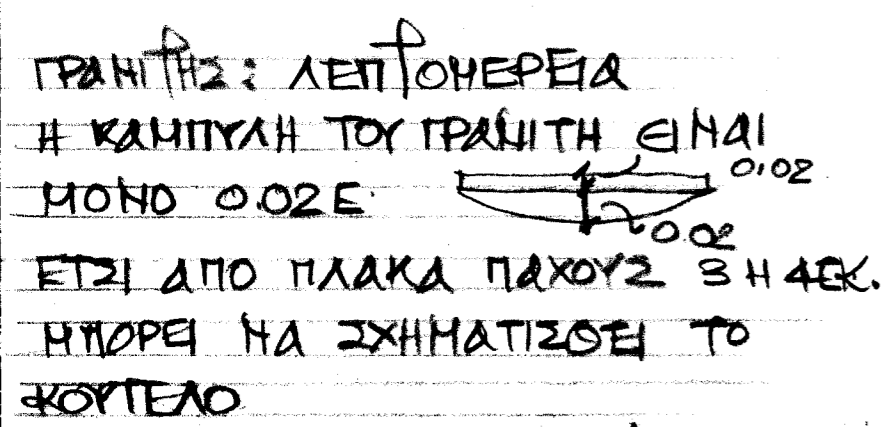 ΓΡΑΝΙΤΗΣ: ΛΕΠΤΟΜΕΡΕΙΑ
Η ΚΑΜΠΥΛΗ ΤΟΥ ΓΡΑΝΙΤΗ ΕΙΝΑΙ
0,02
ΜΟΝΟ 0.02 Ε.
0.02
ΕΤΣΙ ΑΠΟ ΠΛΑΚΑ ΠΑΧΟΥΣ 3 Η 4ΕΚ.
ΜΠΟΡΕΙ ΝΑ ΣΧΗΜΑΤΙΣΘΕΙ ΤΟ
ΚΟΥΤΕΛΟ